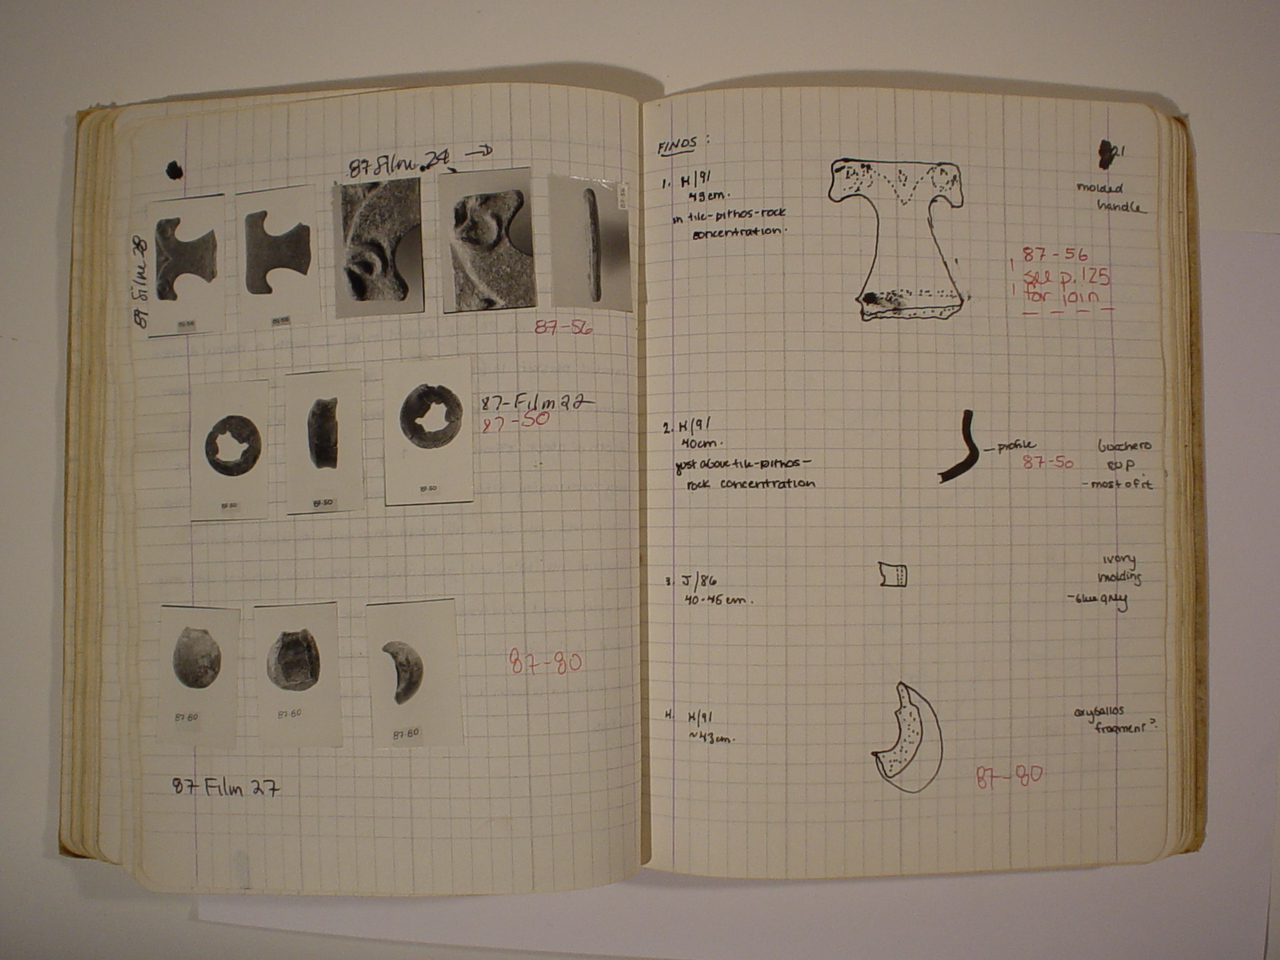 87 Film 28
87-56
87-Film 22
87-50
87-50
87-50
87-50
87-80
87-80
87-80
87-80
87 Film 27
FINDS:
21
1. H/91
molded
handle
in tile-pithos-rock
concentration.
87-56
see p.125
for join
2. H/91
40cm.
just above tile-pithos-
rock concentration
profile
87-50
bucchero
cup
- most of it
3. J/86
40-45 cm.
ivory
molding
- blue grey
4. H/91
~43cm.
aryballos
fragment?
87-80